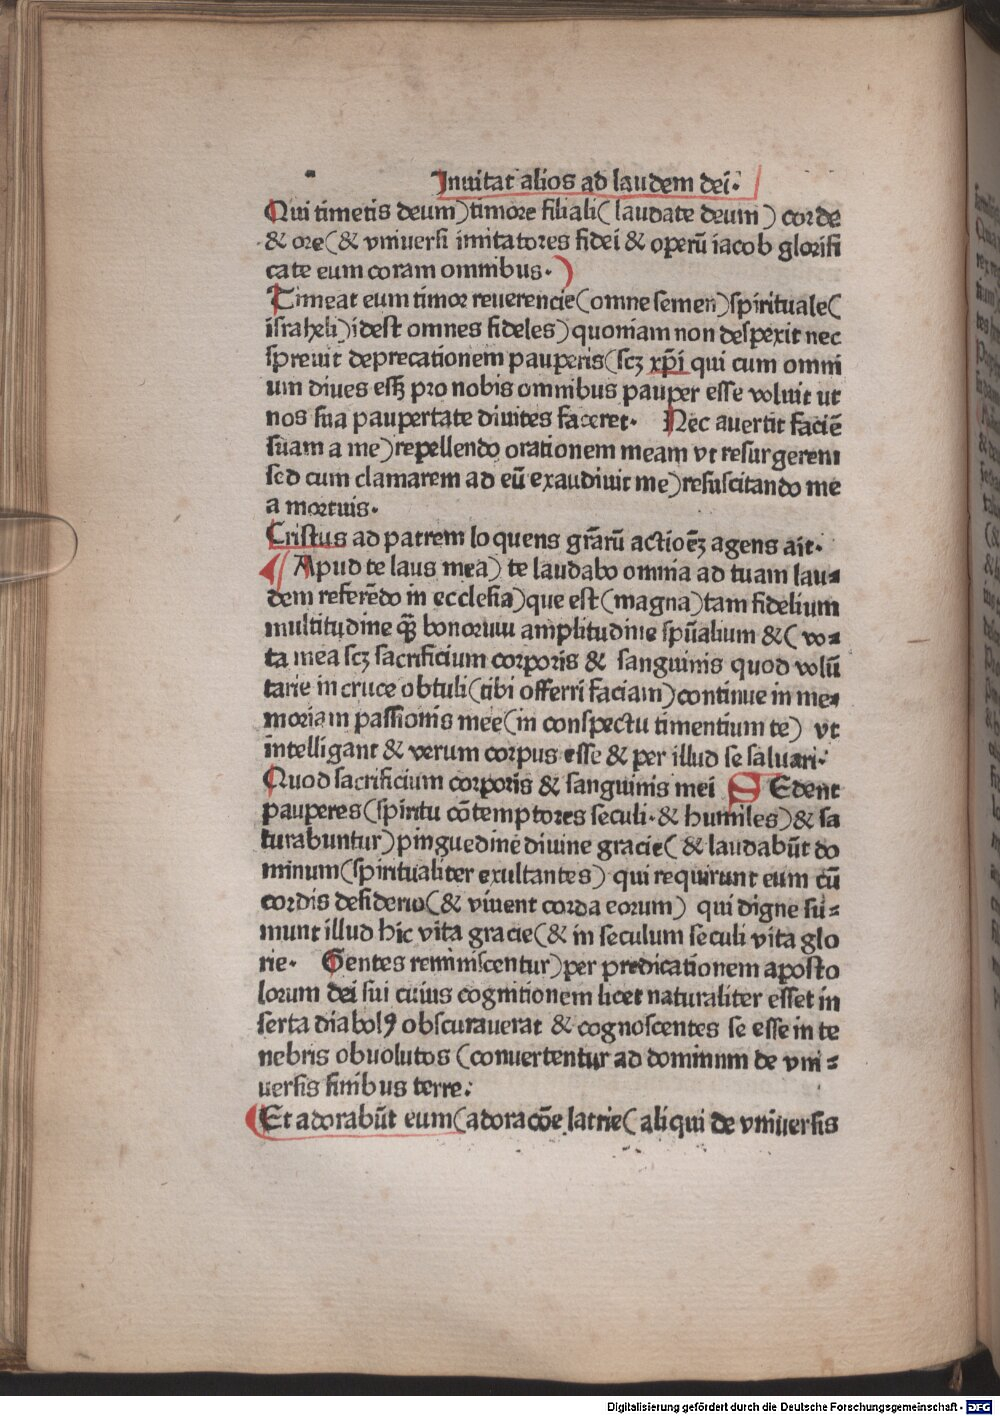 Inuitat alios ad laudem dei.
Qui timetis deum) timore filiali( laudate deum) corde
& ore(& vniuersi imitatores fidei & operū iacob glorifi
cate eum coram omnibus.)
Timeat eum timor reuerencie(omne semen)spirituale(
israhel)idest omnes fideles)quoniam non despexit nec
spreuit deprecationem pauperis(scꝫ xp̄i qui cum omni
um diues essꝫ pro nobis omnibus pauper esse voluit ut
nos sua paupertate diuites faceret. Nec auertit faciē
suam a me)repellendo orationem meam vt resurgerem
sed cum clamarem ad eū exaudiuit me)resuscitando me
a mortuis.
Cristus ad patrem loquens gr̄arū actiōeꝫ agens ait.
Apud te laus mea) te laudabo omnia ad tuam lau⸗
dem referēdo in ecclesia)que est(magna)tam fidelium
multitudine qꝫ bonorum amplitudine spūalium &( vo⸗
ta mea scꝫ sacrificium corporis & sanguinis quod volū
tarie in cruce obtuli(tibi offerri faciam)continue in me⸗
moriam passionis mee(in conspectu timentium te) vt
intelligant & verum corpus esse & per illud se saluari.
Quod sacrificium corporis & sanguinis mei SEdent
pauperes(spiritu cōtemptores seculi. & humiles)& sa
turabuntur)pinguedine diuine gracie( & laudabūt do
minum(spiritualiter exultantes) qui requirunt eum cū
cordis desiderio(& viuent corda eorum) qui digne su⸗
munt illud hic vita gracie(& in seculum seculi vita glo
rie. Gentes reminiscentur)per predicationem aposto
lorum dei sui cuius cognitionem licet naturaliter esset in
serta diabolꝰ obscurauerat & cognoscentes se esse in te
nebris obuolutos (conuertentur ad dominum de vni⸗
uersis finibus terre.
Et adorabūt eum(adoracōe latrie( aliqui de vniuersis
Digitalisierung gefördert durch die Deutsche Forschungsgemeinschaft - DFG